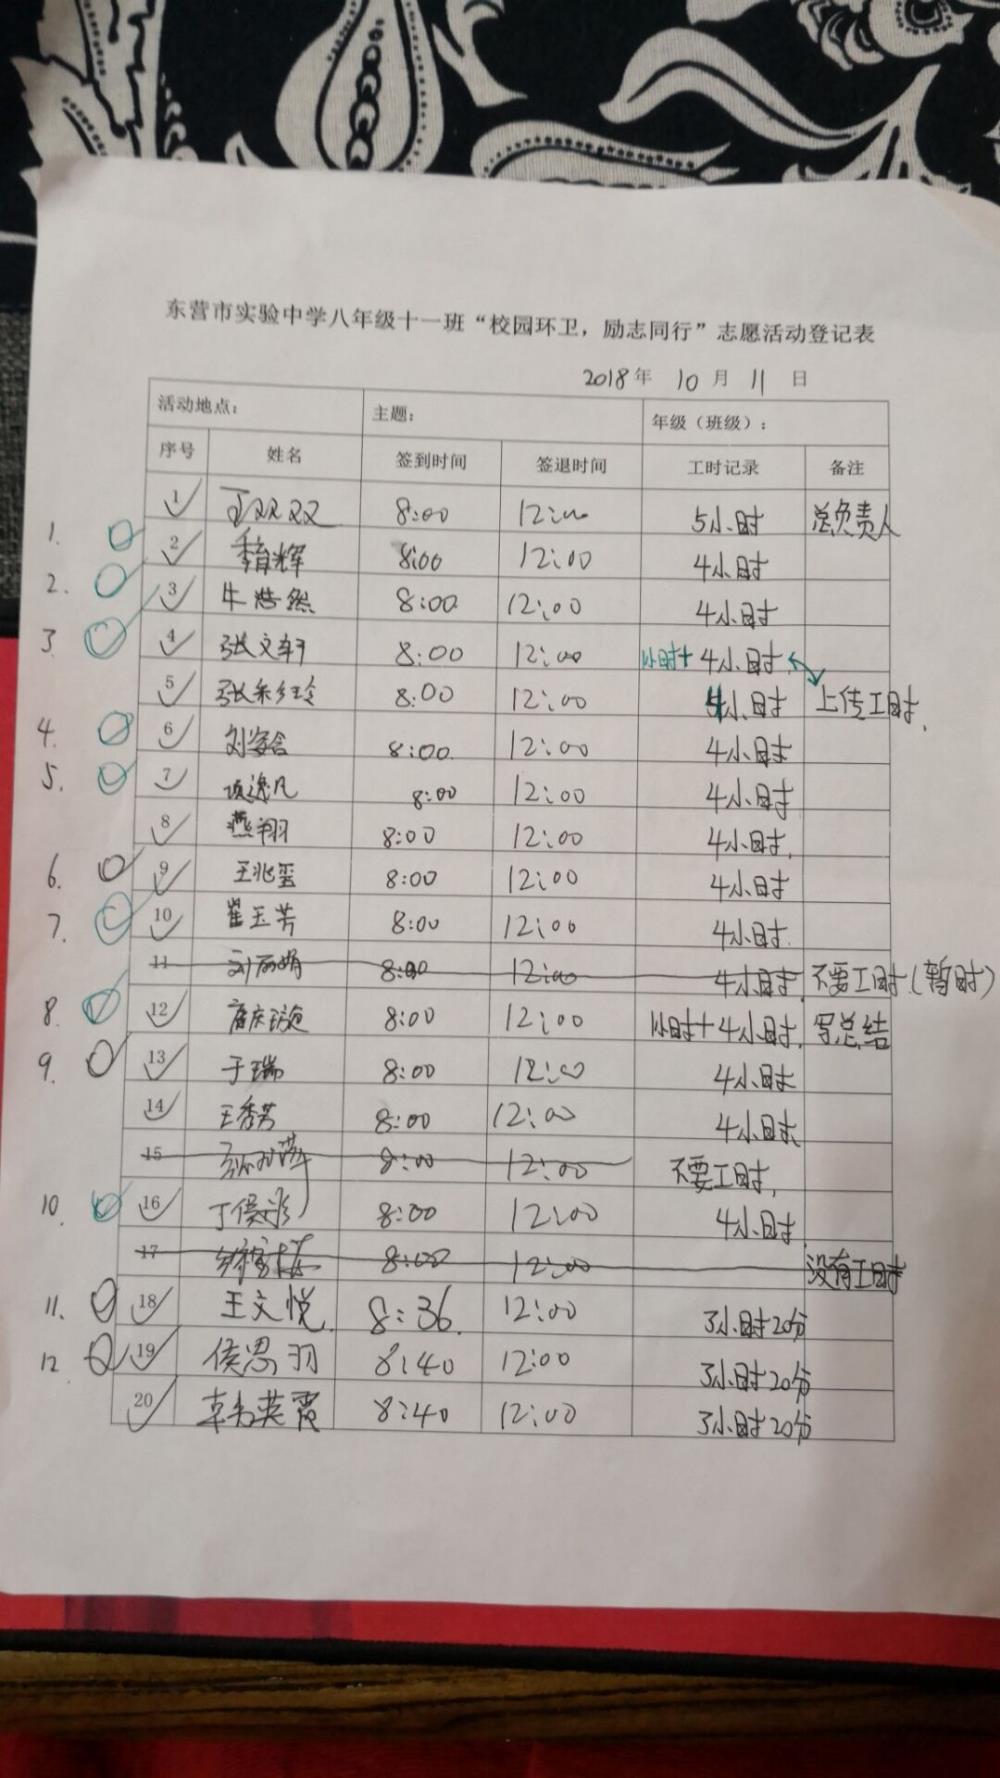 东营市实验中学八年级十一班“校园环卫，励志同行”志愿活动登记表
2018年 10月 11日
活动地点： 主题： 年级（班级）：
序号 姓名 签到时间 签退时间 工时记录 备注
1 双双 8:00 12:00 5小时 总负责人
1. 2 辉 8:00 12:00 4小时
2. 3 牛浩然 8:00 12:00 4小时
3. 4 张文轩 8:00 12:00 1小时+4小时
5 张 玲 8:00 12:00 4小时 上传工时.
4. 6 刘姿含 8:00 12:00 4小时
5. 7 项逸凡 8:00 12:00 4小时
8 燕翔 8:00 12:00 4小时.
6. 9 王兆玺 8:00 12:00 4小时
7. 10 崔玉芳 8:00 12:00 4小时.
11 刘丽娟 8:00 12:00 4小时. 不要工时(暂时)
8. 12 8:00 12:00 1小时+4小时. 写总结
9. 13 于瑞 8:00 12:00 4小时
14 王秀芳 8:00 12:00 4小时
15 8:00 12:00 不要工时.
10. 16 丁俊彤 8:00 12:00 4小时.
17 8:00 12:00 没有工时
11. 18 王文悦. 8:36. 12:00 3小时20分
12. 19 侯思羽 8:40 12:00 3小时20分
20 英霞 8:40 12:00 3小时20分